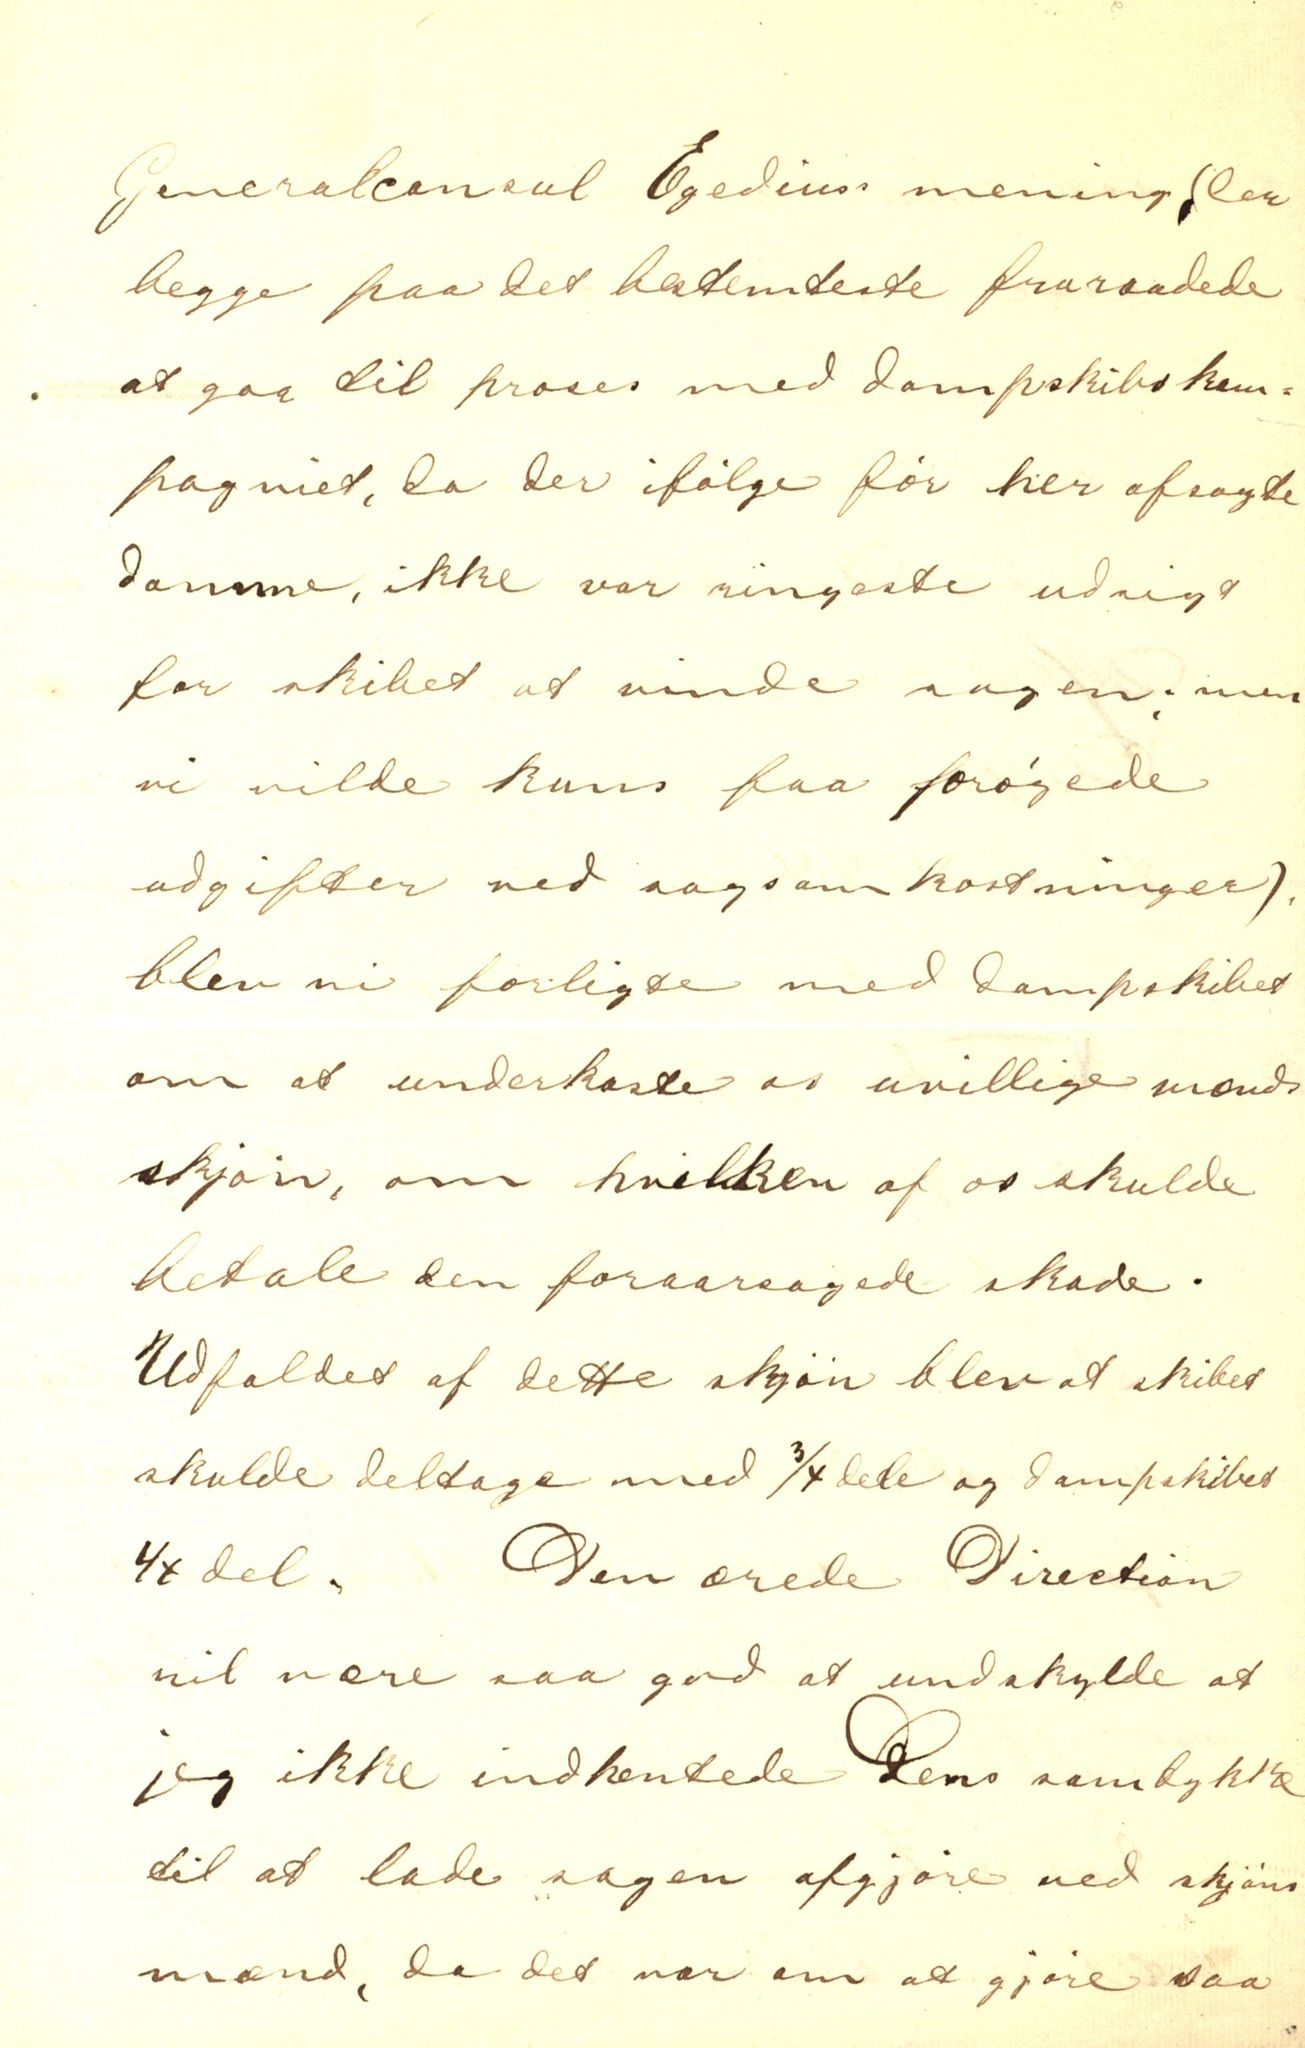 Generalconsul Egediuss mening, (der
begge paa det bestemteste fraraadede
at gaa til proses med dampskibskom=
pagniet, da der ifølge før her afsagte
domme, ikke var ringeste udsigt
for skibet at vinde sagen; men
vi vilde kuns faa forøgede
udgifter ved sagsomkostninger),
blev vi forligte med dampskibet
om at underkaste os uvillige mænds
skjøn, om hvilken af os skulde
betale den foraarsagede skade.
Udfaldet af dette skjøn blev at skibet
skulde deltage med 3/4 dele og dampskibet
1/4 del. Den ærede Direction
vil være saa god at undskylde at
jeg ikke indhentede Dens samtykke
til at lade sagen afgjøre ved skjøns
mænd, da det var om at gjøre saa